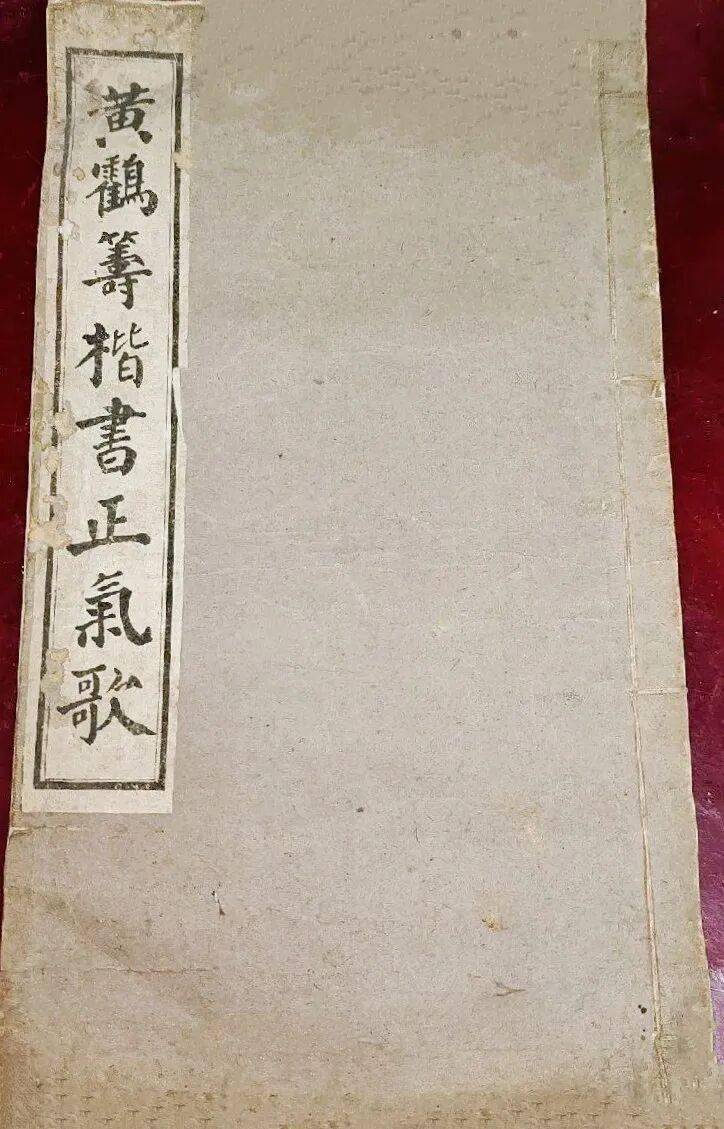 黄鶴籌楷書正氣歌